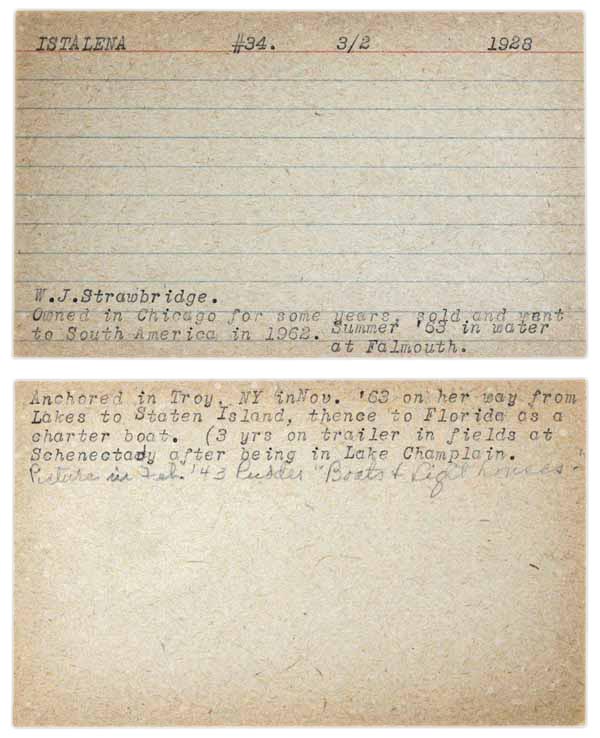 ISTALENA #34. 3/2 1928
W.J.Strawbridge.
Owned in Chicago for some years, sold and went
to South America in 1962. Summer '63 in water
at Falmouth.
Anchored in Troy, NY inNov. '63 on her way from
Lakes to Staten Island, thence to Florida as a
charter boat. (3 yrs on trailer in fields at
Schenectady after being in Lake Champlain.
Picture in Feb. '43 Rudder "Boats & Light houses"